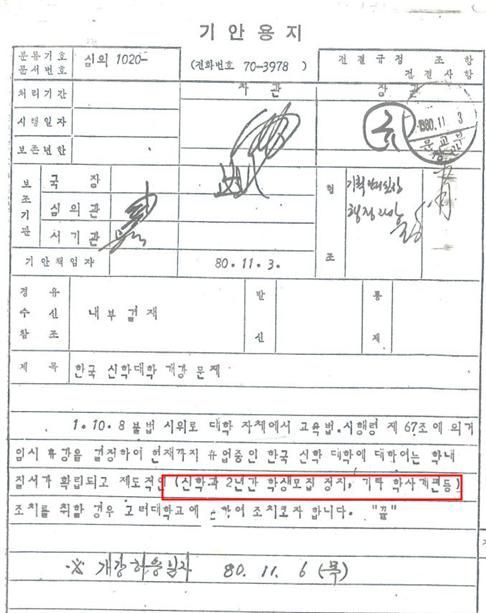 기안용지
분류기호 문서번호 심의 1020- (전화번호 70-3978) 전결규정 조 항 전결사항
처리기간 차관 장관
시행일자 1980.11. 3
보존년한 문교부 장관
보조기관 국장 협조 기획관리실장
심의관 행정
서기관
기안책임자 80.11.3.
경유 수신 참조 내부결재 발신 통제
제목 한국 신학대학 개강 문제
1.10.8 불법 시위로 대학 자체에서 교육법.시행령 제 67조에 의거
임시 휴강을 결정하여 현재까지 휴업중인 한국 신학 대학에 대하여는 학내
질서가 확립되고 제도적인 (신학과 2년간 학생모집 정지, 기타 학사개편등)
조치를 취할 경우 그러대학교에 하여 조치코자 합니다. "끝"
※ 개강허용일자 80. 11. 6 (목)